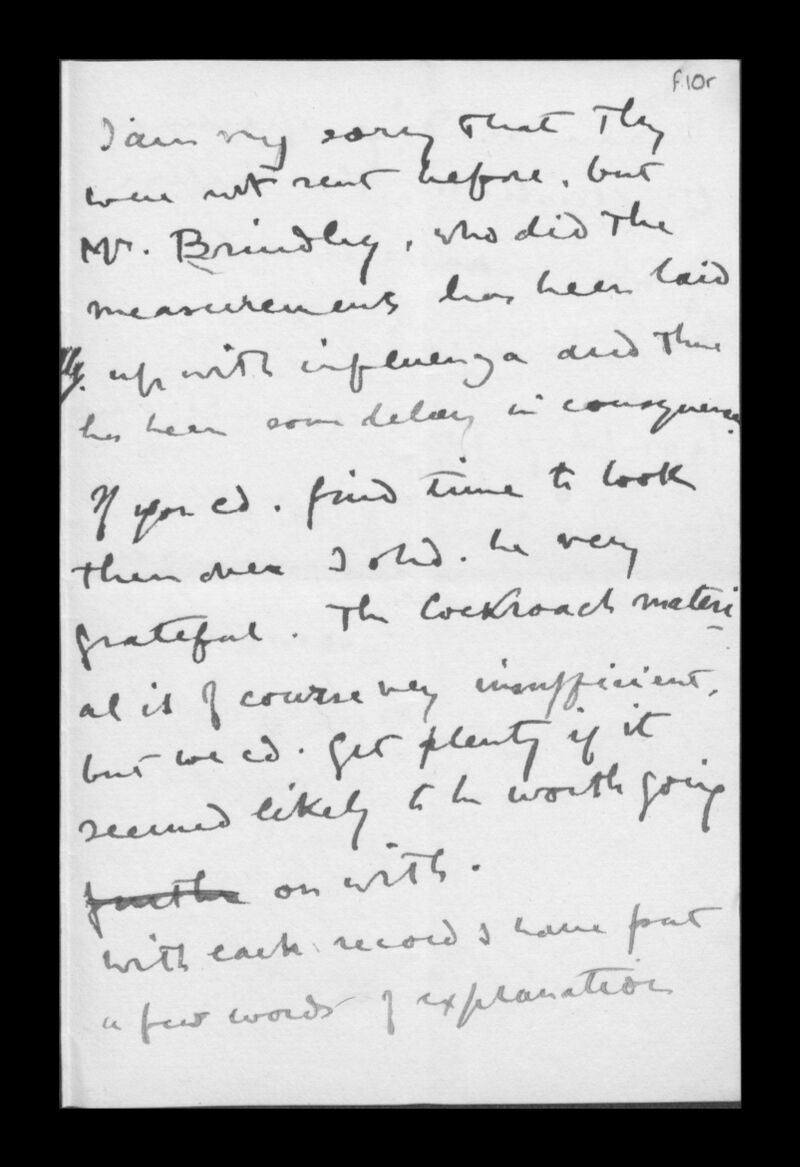 f.10r
I am very sorry that they
were not sent before, but
Mr. Brindley, who did the
measurements has been laid
up with influenza and there
has been some delay in consequence.
If you cd. find time to look
them over I shd. be very
grateful. The Cockroach materi
al is of course very insufficient,
but we cd. get plenty if it
seemed likely to be worth going
further on with.
With each record I have put
a few words of explanation